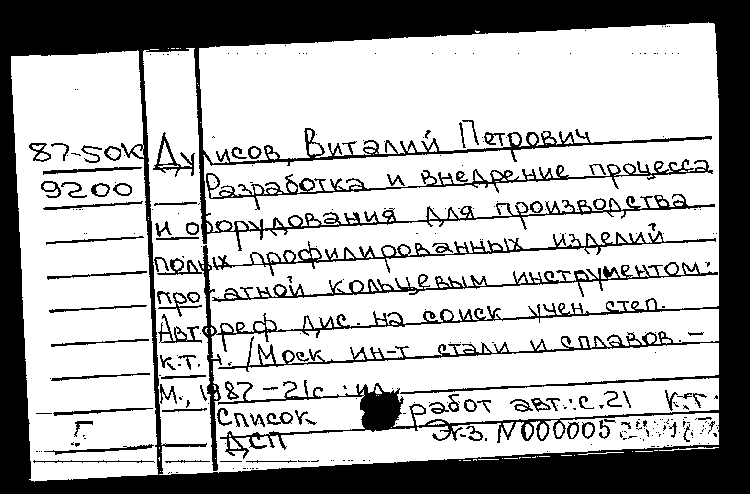 87-50К Дулисов, Виталий Петрович
9200 Разработка и внедрение процесса
и оборудования для производства
полых профилированных изделий
прокатной кольцевым инструментом:
Автореф. дис. на соиск учен. степ.
к.т.н. /Моск. ин-т стали и сплавов. –
М., 1987 – 21с. : ил.
Список работ авт.: с. 21 к.т.
Г ДСП Экз. N000005